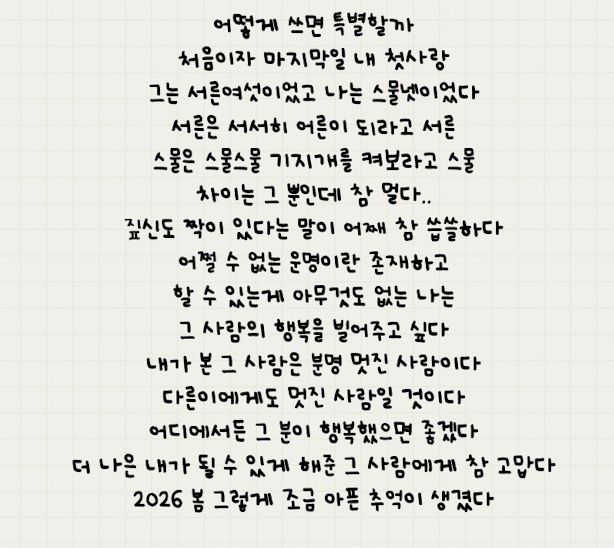 어떻게 쓰면 특별할까
처음이자 마지막일 내 첫사랑
그는 서른여섯이었고 나는 스물넷이었다
서른은 서서히 어른이 되라고 서른
스물은 스물스물 기지개를 켜보라고 스물
차이는 그 뿐인데 참 멀다..
짚신도 짝이 있다는 말이 어째 참 씁쓸하다
어쩔 수 없는 운명이란 존재하고
할 수 있는게 아무것도 없는 나는
그 사람의 행복을 빌어주고 싶다
내가 본 그 사람은 분명 멋진 사람이다
다른이에게도 멋진 사람일 것이다
어디에서든 그 분이 행복했으면 좋겠다
더 나은 내가 될 수 있게 해준 그 사람에게 참 고맙다
2026 봄 그렇게 조금 아픈 추억이 생겼다